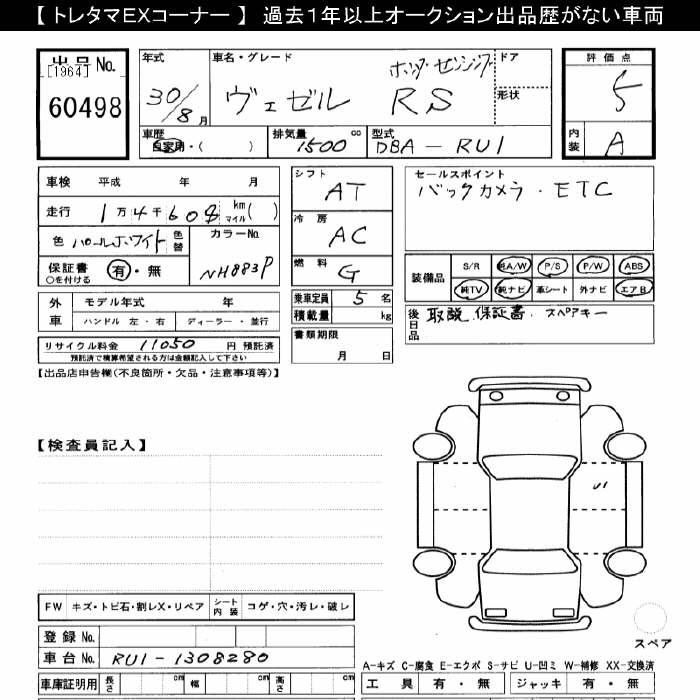 【 トレタマEXコーナー 】 過去1年以上オークション出品歴がない車両
出品 No.
[1964]
60498
年式 30/8月
車名・グレード ホンダ センシング
ヴェゼル RS
ドア
形状
評価点 5
内装 A
車歴 自家用・( )
排気量 1500 cc
型式 DBA-RU1
車検 平成 年 月
走行 1万4千608 km マイル ( )
色 パールホワイト 色替
カラーNo. NH883P
保証書 ○を付ける 有・無
シフト AT
冷房 AC
燃料 G
乗車定員 5 名
積載量 kg
書類期限 月 日
セールスポイント
バックカメラ・ETC
装備品 S/R 純A/W P/S P/W ABS
純TV 純ナビ 革シート 外ナビ エアB
後日品 取説、保証書、スペアキー
外車 モデル年式 年
ハンドル 左・右 ディーラー・並行
リサイクル料金 11050 円 預託済
預託済で積算希望される方は金額記入して下さい
【出品店申告欄(不良箇所・欠品・注意事項等)】
【検査員記入】
FW キズ・トビ石・割レX・リペア シート内装 コゲ・穴・汚レ・破レ
登録 No.
車台 No. RU1-1308280
車庫証明用 長さ cm 幅 cm 高さ cm
スペア
A-キズ C-腐食 E-エクボ S-サビ U-凹ミ W-補修 XX-交換済
工具 有・無 ジャッキ 有・無